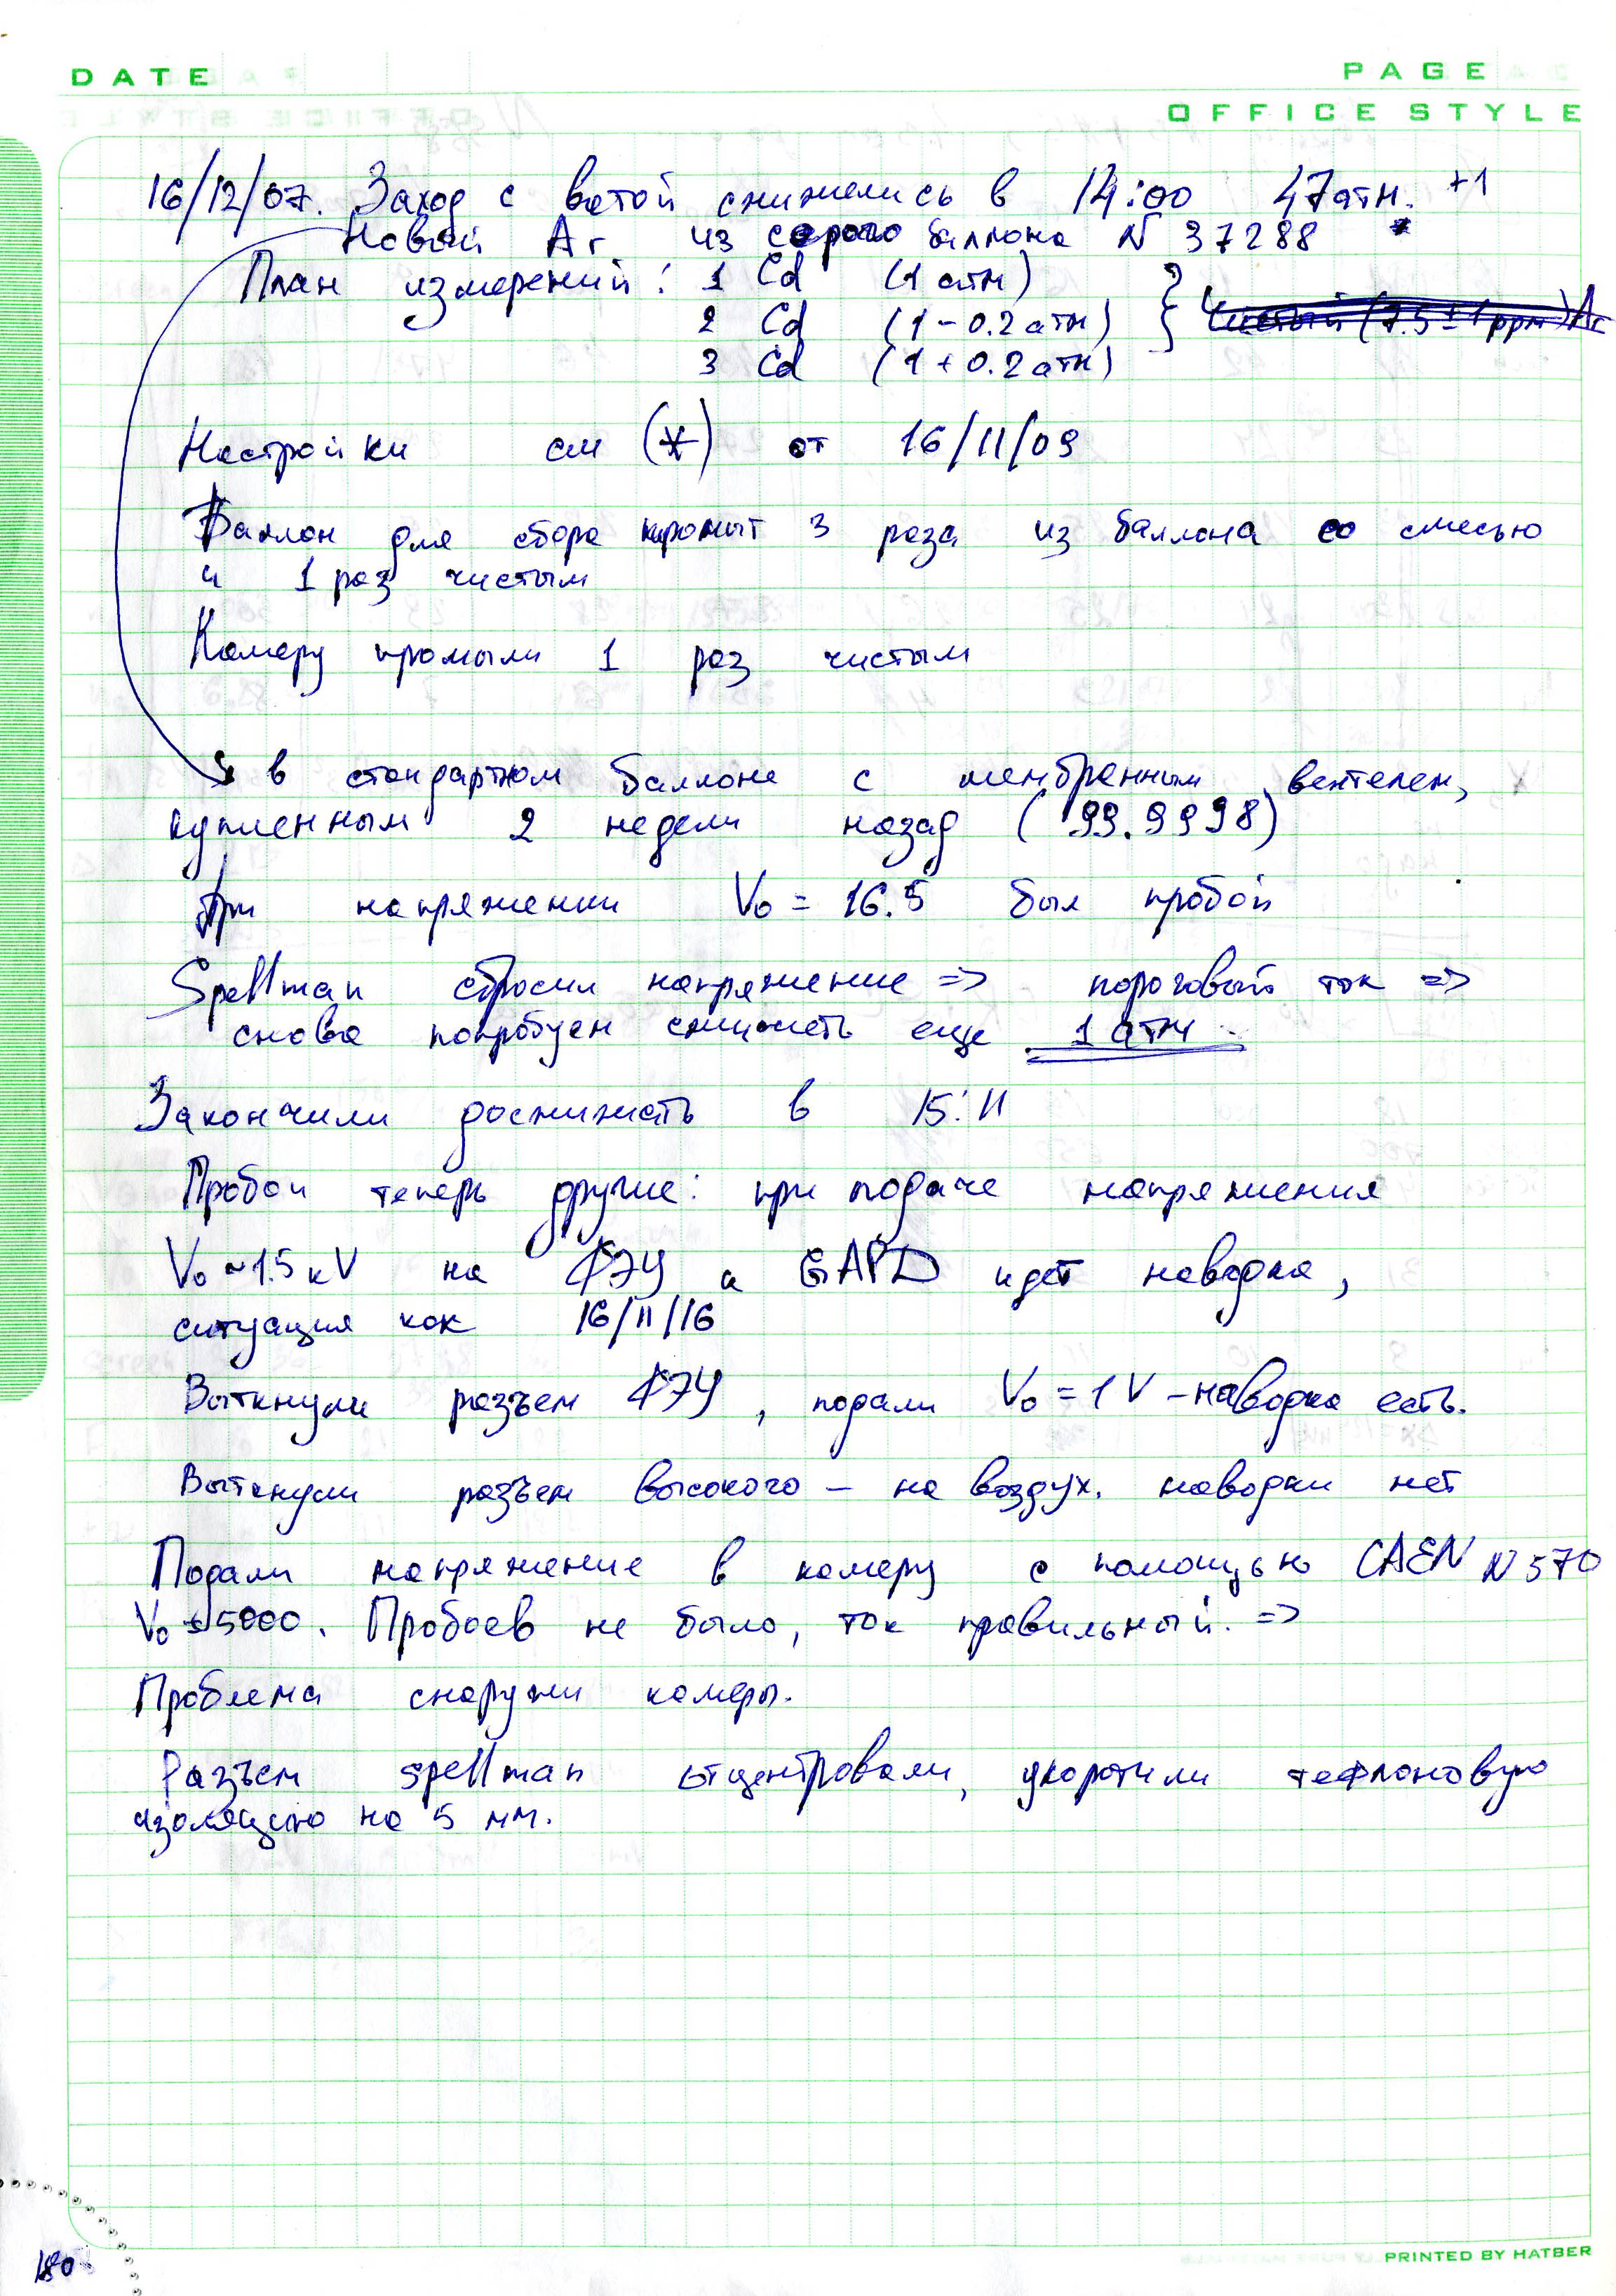 DATE
PAGE
OFFICE STYLE
16/12/07. Заход с ватой снижались в 14:00 47 атм. +1
Новый Ar из серого баллона N 37288 *
План измерений: 1 Cd (1 атм)
2 Cd (1 - 0.2 атм) } Чистый (7.5 ± 1 ppm) Ar
3 Cd (1 + 0.2 атм)
Настройки см (*) от 16/11/09
Баллон для сбора промыт 3 раза из баллона со смесью
и 1 раз чистым
Камеру промыли 1 раз чистым
в стандартном баллоне с мембранным вентелем,
купленным 2 недели назад (99.9998)
При напряжении V₀ = 16.5 был пробой
Spellman сбросил напряжение => пороговый ток =>
снова попробуем снижать еще 1 атм
Закончили доснижать в 15:11
Пробои теперь другие: при подаче напряжения
V₀ ~ 1.5 kV на ФЭУ и GAPD идет наводка,
ситуация как 16/11/16
Выткнули разъем ФЭУ, подали V₀ = 1 V - наводка есть.
Выткнули разъем высокого - на воздух. наводки нет
Подали напряжение в камеру с помощью CAEN N570
V₀ ≤ 5000. Пробоев не было, ток правильный. =>
Проблема снаружи камеры.
Разъем spellman отцентровали, укоротили тефлоновую
изоляцию на 5 мм.
180
PRINTED BY HATBER